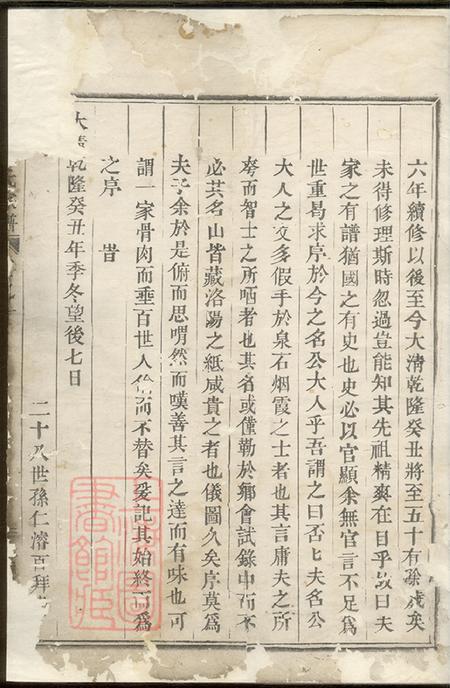 六年續修以後至今大清乾隆癸丑將至五十有餘歲矣
未得修理斯時忽過豈能知其先祖精爽在目乎故曰夫
家之有譜猶國之有史也史必以官顯余無官言不足爲
世重曷求序於今之名公大人乎吾謂之曰否匕夫名公
大人之文多假手於泉石烟霞之士者也其言庸夫之所
夸而智士之所哂者也其名或僅勒於鄉會試錄中而不
必其名山皆藏洛陽之紙咸貴之者也儀圖久矣序莫爲
夫子余於是俯而思喟然而嘆善其言之達而有味也可
謂一家骨肉而垂百世人倫而不替矣爰記其始終而爲
之序 旹
大清乾隆癸丑年季冬望後七日
二十八世孫仁濬百拜
上海圖書館